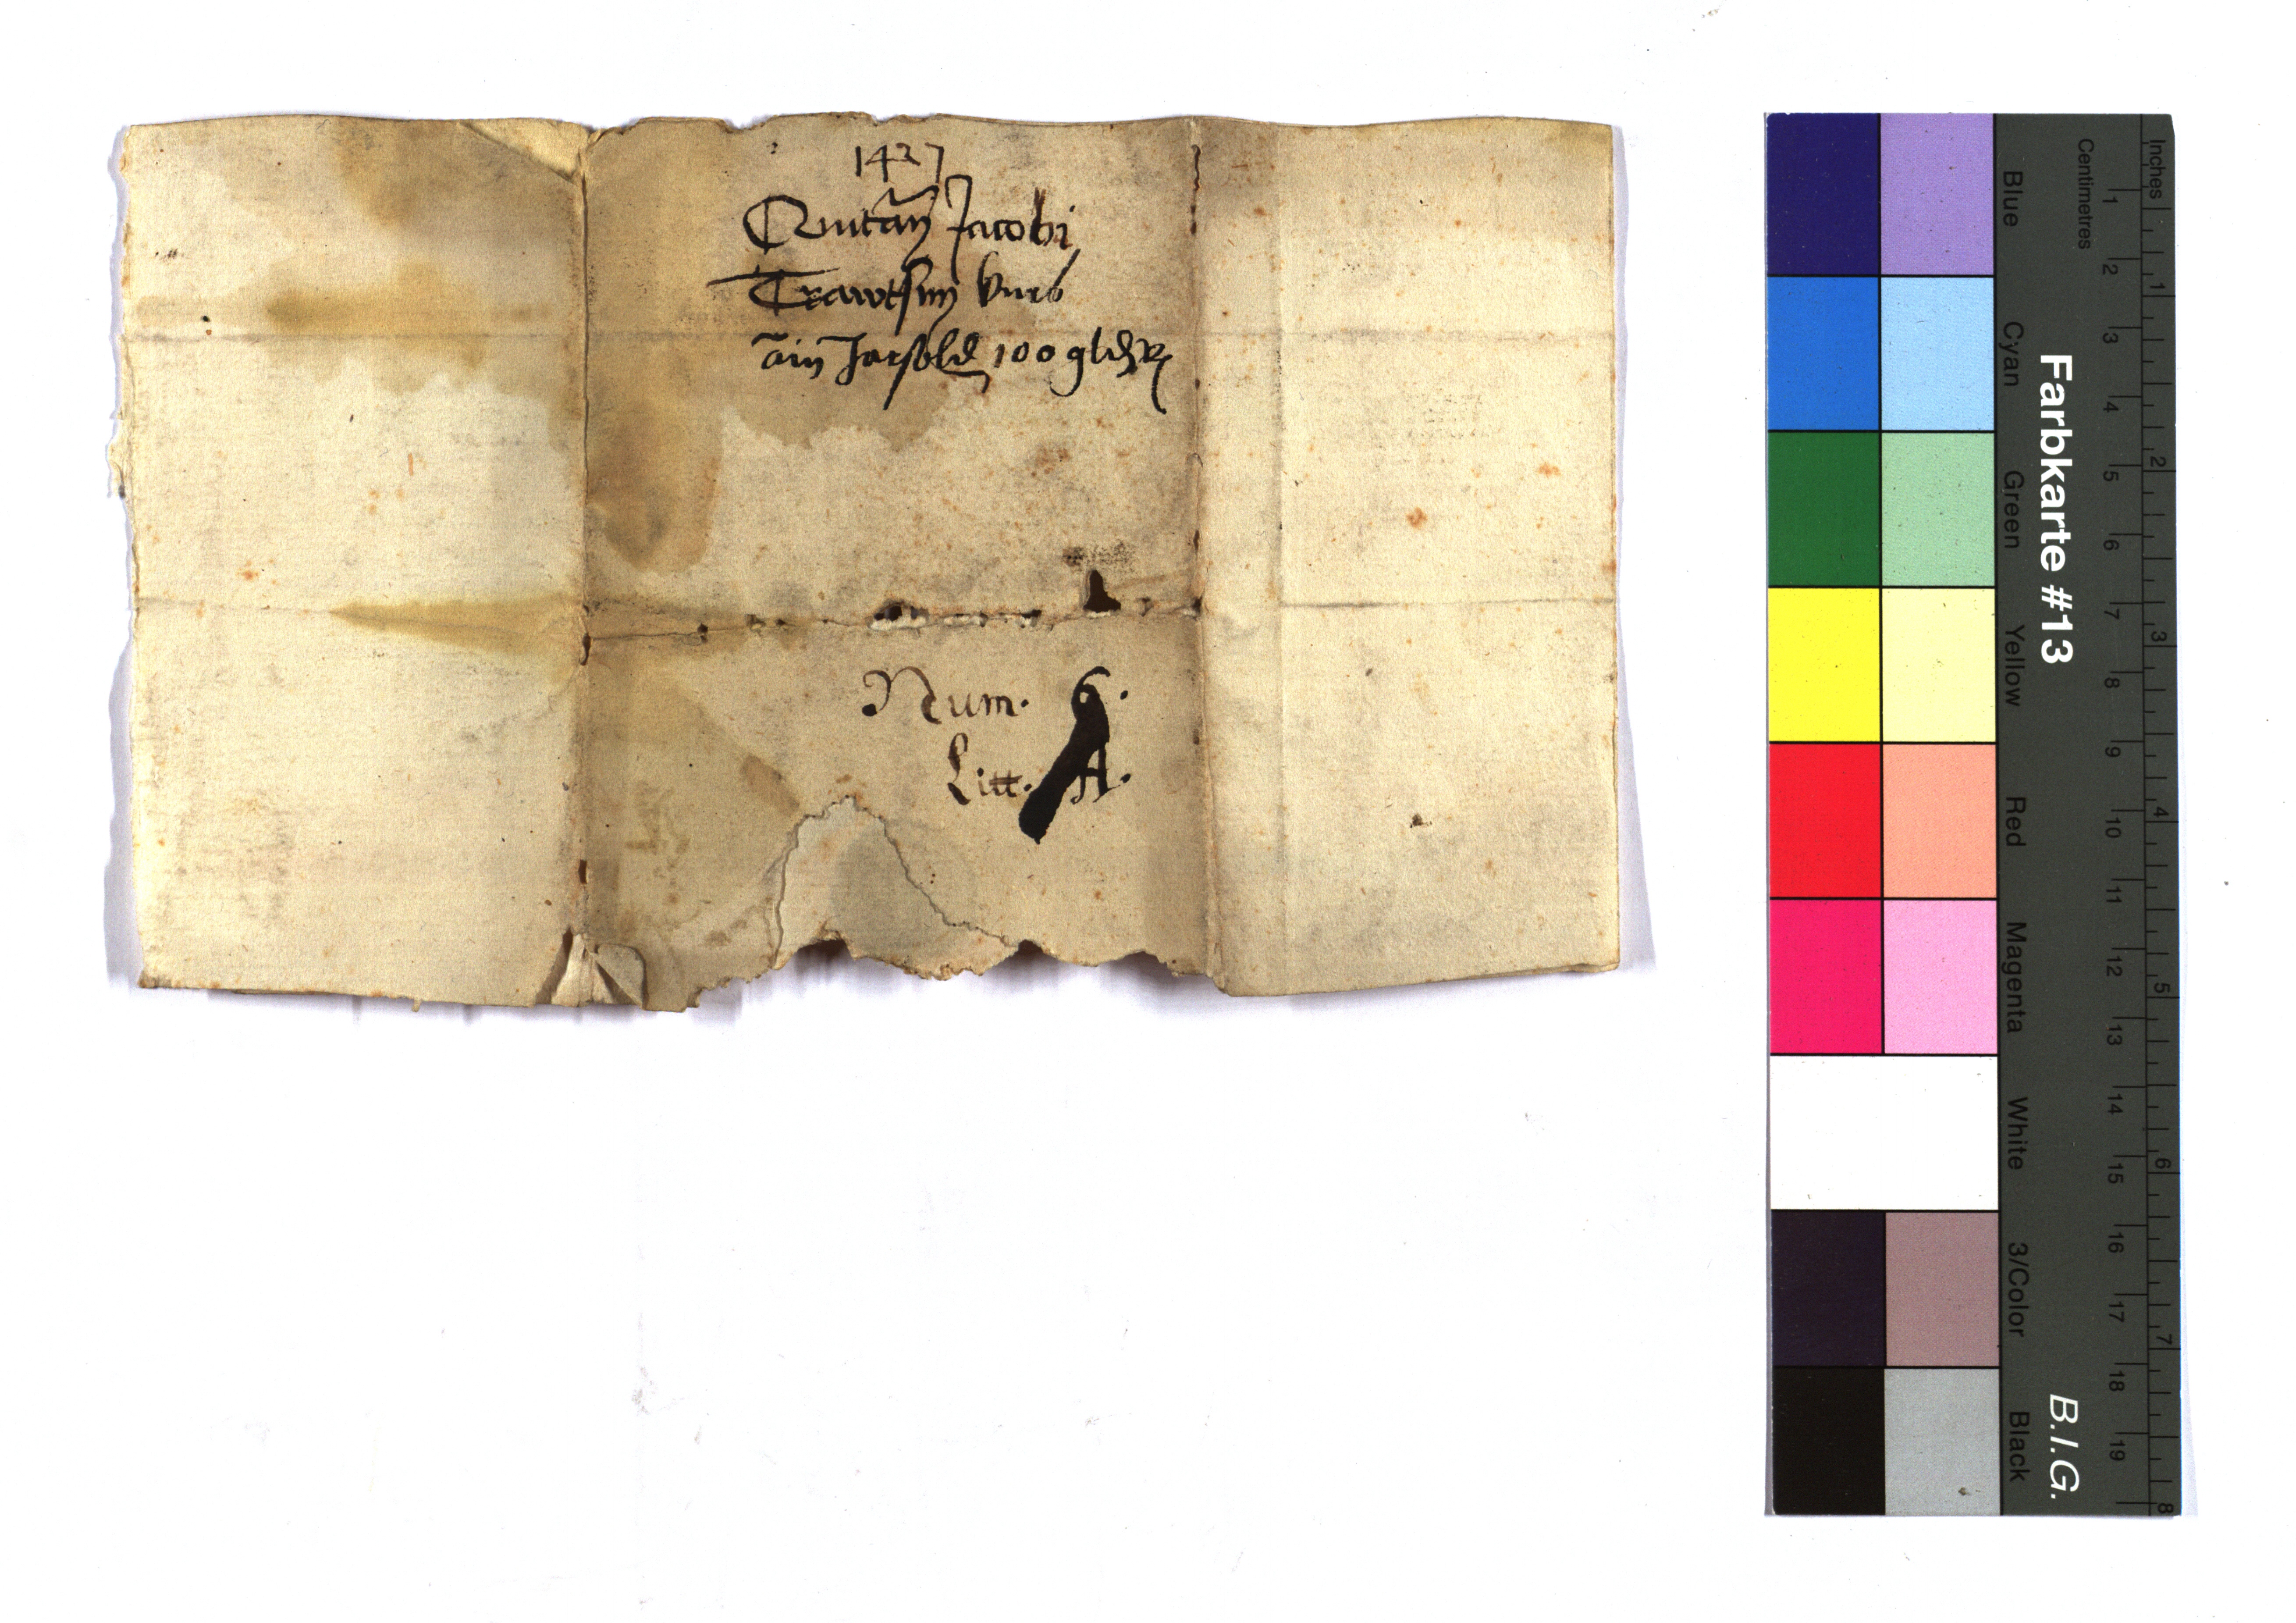 1427
Quitañ Jacobi
Trawtsun
ain Jarsold 100 gld
Num. 6.
Litt. A.
Farbkarte #13
B.I.G.
Blue
Cyan
Green
Yellow
Red
Magenta
White
3/Color
Black
Centimetres
1 2 3 4 5 6 7 8 9 10 11 12 13 14 15 16 17 18 19
Inches
1 2 3 4 5 6 7 8